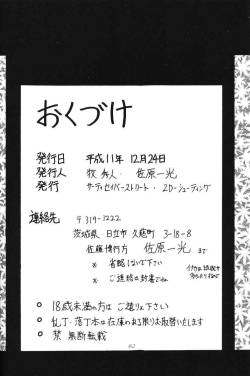 おくづけ
発行日 平成11年 12月24日
発行人 牧 秀人・佐原一光
発行 サーティセイバーストリート・2D-シューティング
連絡先 〒319-1222
茨城県 日立市 久慈町 3-18-8
佐藤博行方 佐原一光 まで
※ 省略しないで下さい
※ ご連絡は封書でね
○ 18歳未満の方は ご遠りょ下さい
○ 乱丁・落丁本は在庫のある限りお取替いたします
○ 禁 無断転載